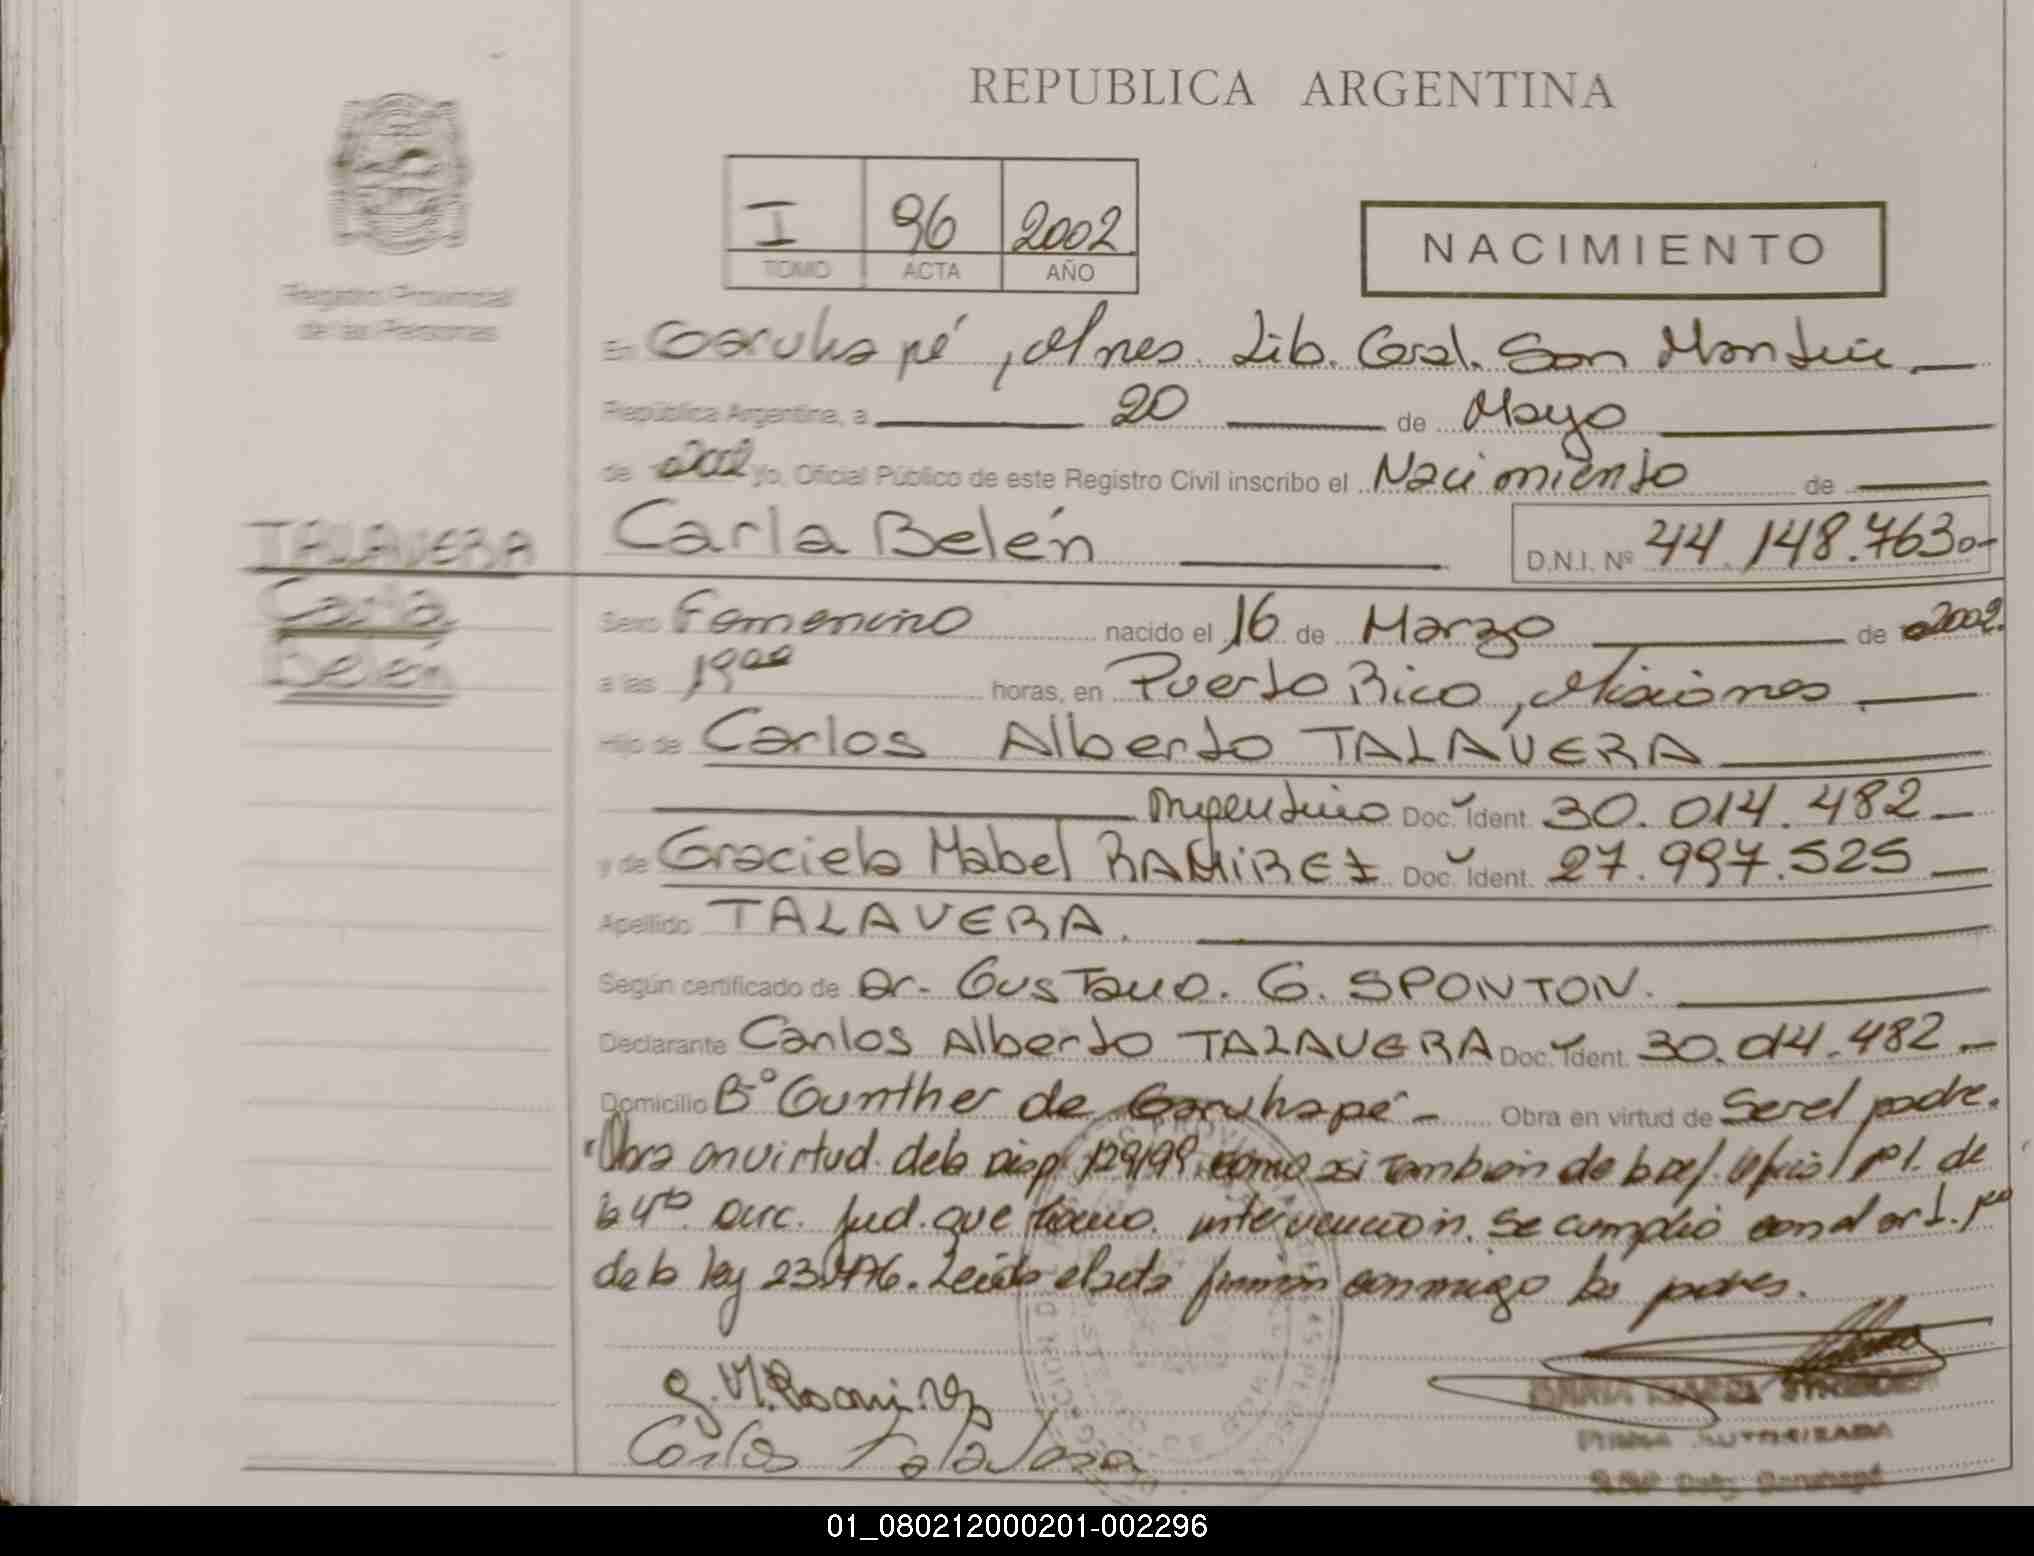 REPUBLICA ARGENTINA
I 96 2002
TOMO ACTA AÑO
NACIMIENTO
Registro Provincial
de las Personas
En Garuhapé, Mnes. Lib. Gral. San Martín
República Argentina, a 20 de Mayo
de 2002 yo, Oficial Público de este Registro Civil inscribo el Nacimiento de
TALAVERA
Carla
Belén
Carla Belén D.N.I. Nº 44.148.763.-
Sexo Femenino nacido el 16 de Marzo de 2002.
a las 19 00 horas, en Puerto Rico, Misiones.
Hijo de Carlos Alberto TALAVERA
Argentino Doc. Ident. 30.014.482
y de Graciela Mabel RAMIREZ Doc. Ident. 27.997.525
Apellido TALAVERA.
Según certificado de Dr. Gustavo. G. SPONTON.
Declarante Carlos Alberto TALAVERA Doc. Ident. 30.014.482.-
Domicilio Bº Gunther de Garuhapé - Obra en virtud de Ser el padre.
Obra en virtud de la Disp. 129/99 como asi tambien de la Def. Oficial de
la 4ta. Circ. Jud. que tomo intervencion. Se cumplio con el art. 1
de la ley 23.776. Leida el acta firman conmigo los padres.
G. M. Ramirez
Carlos Talavera
FIRMA AUTORIZADA
01_080212000201-002296